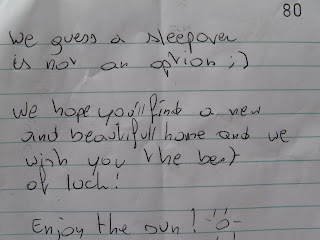 80
We guess a sleepover
is not an option ;)
We hope you'll find a new
and beautifull home and we
wish you the best
of luck!
Enjoy the sun!